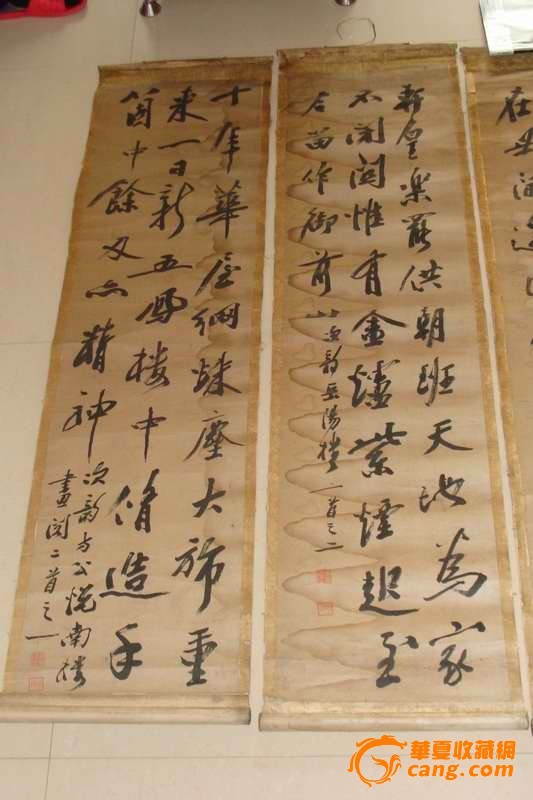 在
軒皇樂罷供朝班天地為家
不閉關惟有金爐紫煙起至
今留作御前山
次韻岳陽樓一首之二
十年華屋網蛛塵大旆重
來一日新五鳳樓中脩造手
箇中餘刃亦精神
次韻方公悅南樓
畫閣二首之一
華夏收藏網
cang.com